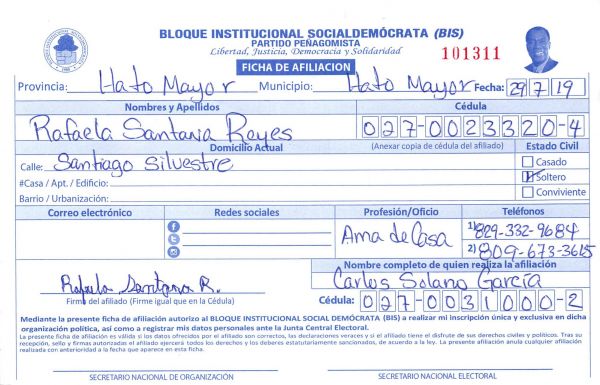 BLOQUE INSTITUCIONAL SOCIALDEMÓCRATA (BIS)
PARTIDO PEÑAGOMISTA
Libertad, Justicia, Democracia y Solidaridad
101311
FICHA DE AFILIACION
Provincia: Hato Mayor Municipio: Hato Mayor Fecha: 29 7 19
Nombres y Apellidos Cédula
Rafaela Santana Reyes 027-0023320-4
Domicilio Actual (Anexar copia de cédula del afiliado) Estado Civil
Calle: Santiago Silvestre Casado
#Casa / Apt. / Edificio: Soltero
Barrio / Urbanización: Conviviente
Correo electrónico Redes sociales Profesión/Oficio Teléfonos
Ama de Casa 1) 829-332-9684
2) 809-673-3615
Nombre completo de quien realiza la afiliación
Rafaela Santana R. Carlos Solano García
Firma del afiliado (Firme igual que en la Cédula) Cédula: 027-0031000-2
Mediante la presente ficha de afiliación autorizo al BLOQUE INSTITUCIONAL SOCIAL DEMÓCRATA (BIS) a realizar mi inscripción única y exclusiva en dicha
organización política, así como a registrar mis datos personales ante la Junta Central Electoral.
La presente ficha de afiliación es válida si los datos ofrecidos por el afiliado son correctos, las declaraciones veraces y si el afiliado tiene el disfrute de sus derechos civiles y políticos. Tras su
recepción, sello y firmas autorizadas el afiliado ejercerá todos los derechos y los deberes estatutariamente sancionados, de acuerdo a la ley. La presente afiliación anula cualquier afiliación
realizada con anterioridad a la fecha que aparece en esta ficha.
SECRETARIO NACIONAL DE ORGANIZACIÓN SECRETARIO NACIONAL ELECTORAL